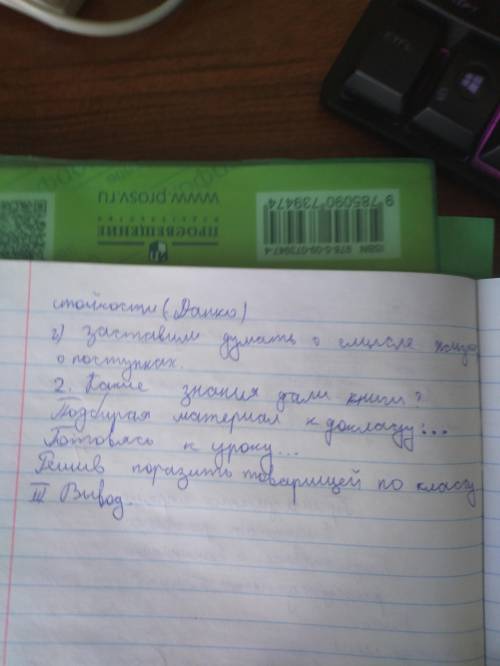 www.prosv.ru
ПРОСВЕЩЕНИЕ
ИЗДАТЕЛЬСТВО
ISBN 978-5-09-073947-4
9 785090 739474
стойкости (Данко)
г) заставили думать о смысле жизни
о поступках.
2. Какие знания дали книги?
Подбирая материал к докладу...
Готовясь к уроку...
Решив поразить товарищей по классу
III Вывод.